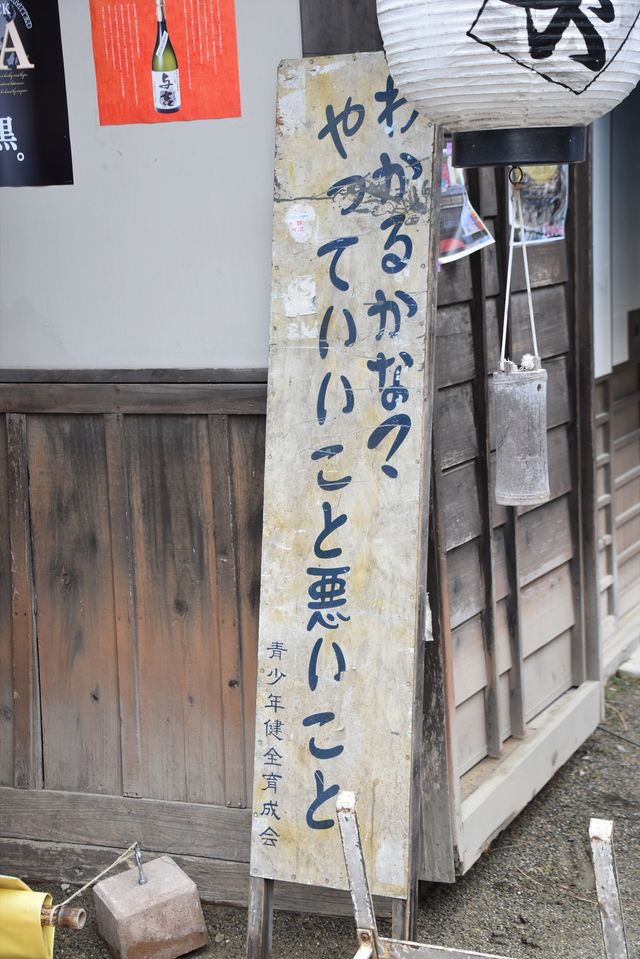 わかるかな?
やっていいこと悪いこと
青少年健全育成会
黒。